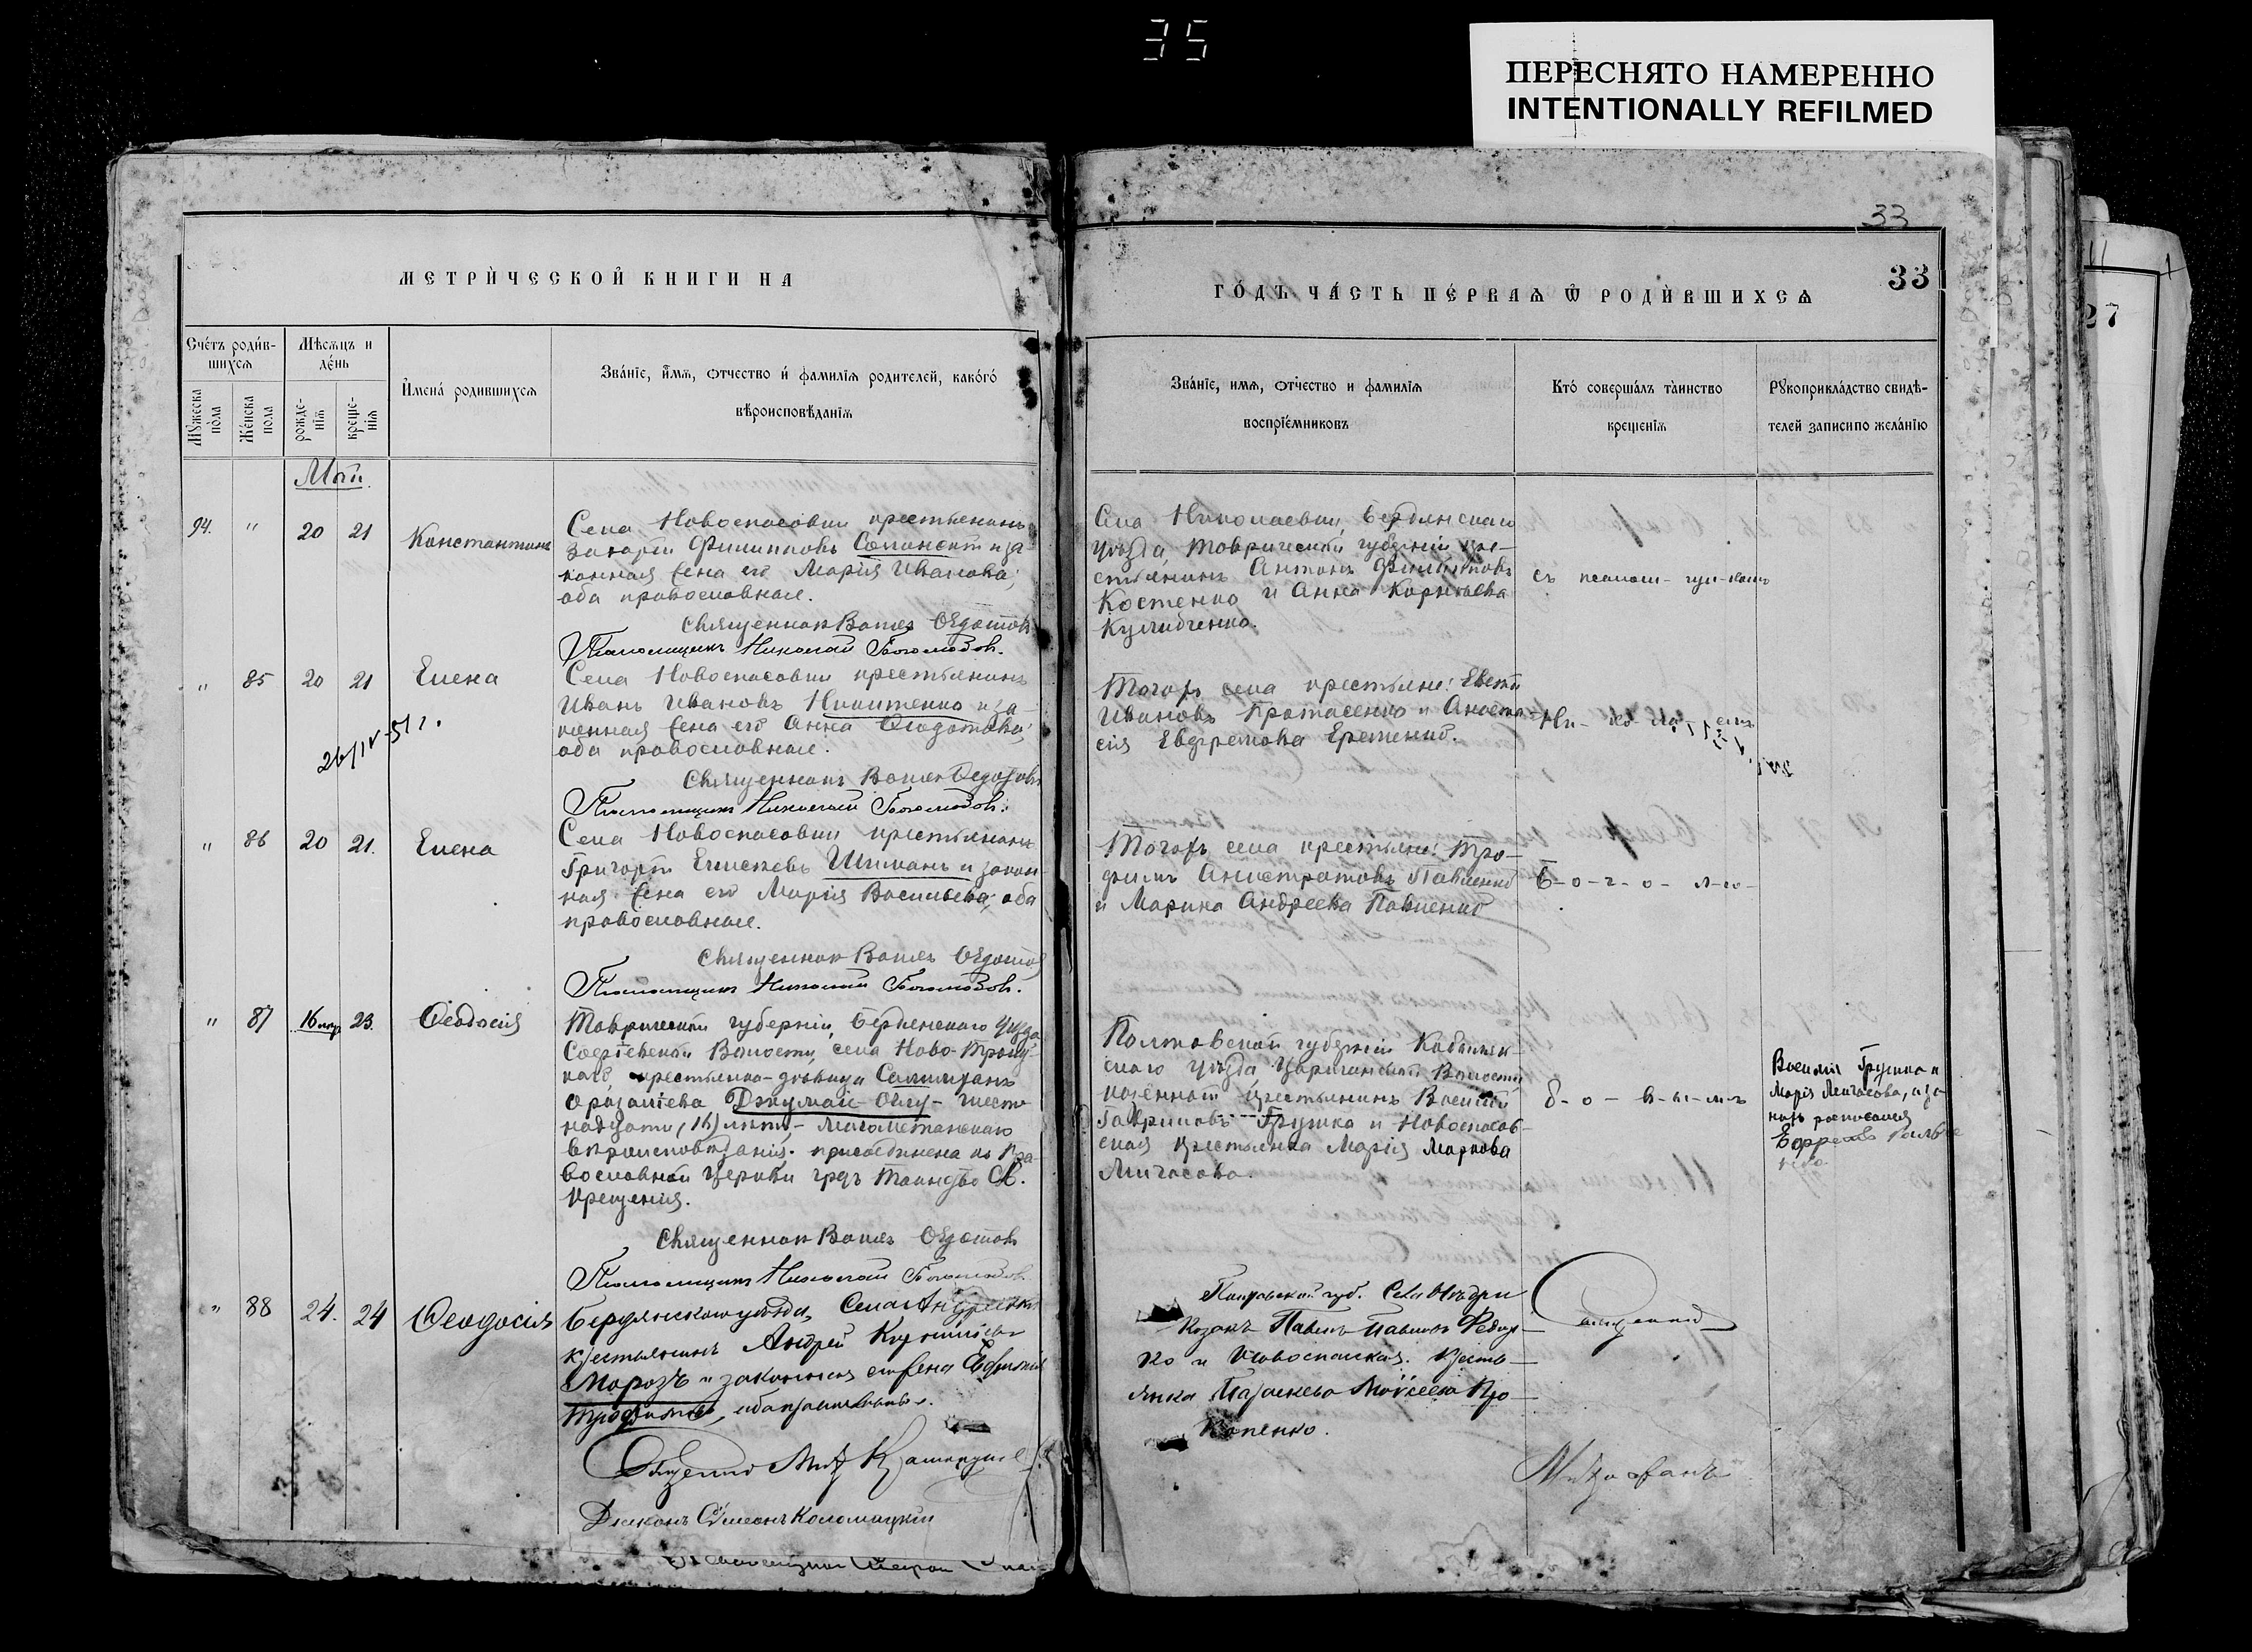 35
ПЕРЕСНЯТО НАМЕРЕННО
INTENTIONALLY REFILMED
33
МЕТРИ́ЧЕСКОЙ КНИГИ НА
Сче́тъ роди́в-
шихсѧ
Мꙋжеска
по́ла
Же́нска
пола
Мѣсѧцъ и
де́нь
рожде-
нїѧ
креще-
нїѧ
И҆мена́ родившихсѧ
Зва́нїе, и҆́мѧ, ѻтчество и҆ фамилїѧ родителей, како́гѡ
вѣроисповѣданїѧ
Май.
94. " 20 21 Константинъ
Села Новоспасовки крестьянинъ
Захарій Филипповъ и за-
конная жена его Марія Иванова,
оба православные.
Священникъ Ѳедотовъ
Псаломщикъ Николай Боголюбов.
" 85 20 21 Елена
Села Новоспасовки крестьянинъ
Иванъ Ивановъ Никитенко и за-
конная жена его Анна Ѳеодотова,
оба православные.
26/IV-51 г.
Священникъ Ѳедотовъ
Псаломщикъ Николай Боголюбов.
" 86 20 21. Елена
Села Новоспасовки крестьянинъ
Григорій Елисеевъ Шиманъ и закон
ная жена его Марія Васильева, оба
православные.
Священникъ Ѳедотовъ
Псаломщикъ Николай Боголюбов.
" 87 16 23. Ѳеодосія
Таврической губерніи, Бердянскаго уѣзда
Софіевской Волости, села Ново-Троиц-
каго, крестьянка-дѣвица
Джуман-Оглу - шест-
надцати (16) лѣтъ, - магометанскаго
вѣроисповѣданія. присоединена къ Пра-
вославной Церкви чрезъ Таинство Св.
Крещенія.
Священникъ Ѳедотовъ
Псаломщикъ Николай Боголюбов.
" 88 24. 24 Ѳеодосія
Бердянскаго уѣзда, Села Андреевки
крестьянинъ Андрей Корнилиевъ
Морозъ и законная его жена Евфимія
Трофимова, оба православные.
Священникъ Митр.
Діаконъ Сѵмеонъ Коломацкій
33
ГО́ДЪ ЧА́СТЬ ПЕ́РВАѦ Ѿ РОДИ́ВШИХСѦ
Зва́нїе, имѧ, ѻтчество и фамилїѧ
воспрїе́мниковъ
Кто̀ соверша́лъ та̀инство
крещенїѧ
Рꙋкоприкла́дство свидѣ-
телей записи по жела́нїю
Села Николаевки, Бердянскаго
уѣзда Таврической губерніи кре-
стьянинъ Антонъ Филипповъ
Костенко и Анна Корнѣева
Кулибченко.
съ псалом-
Тогожъ села крестьяне:
Ивановъ Протасенко и Анаста-
сія Евфремова Еременко.
Ни- ко- ла- емъ
Тогожъ села крестьяне: Тро-
фимъ Павленко
и Марина Андреева Павленко
Б-о-г-о- л-ю-
Полтавской губерніи Кобеляк-
скаго уѣзда Царичанской Волости
казенный крестьянинъ Василій
Гавриловъ Грушка и Новоспасов-
ская крестьянка Марія Маркова
Личасова.
б- о- в-ы-мъ
Василій Грушка и
Марія Личасова, а за
нихъ росписался
Полтавской губ. Села
Козакъ Павелъ Павловъ
ко и Новоспасская кресть-
янка Параскева Моѵсеева Про-
копенко.
Священник
Митрофанъ